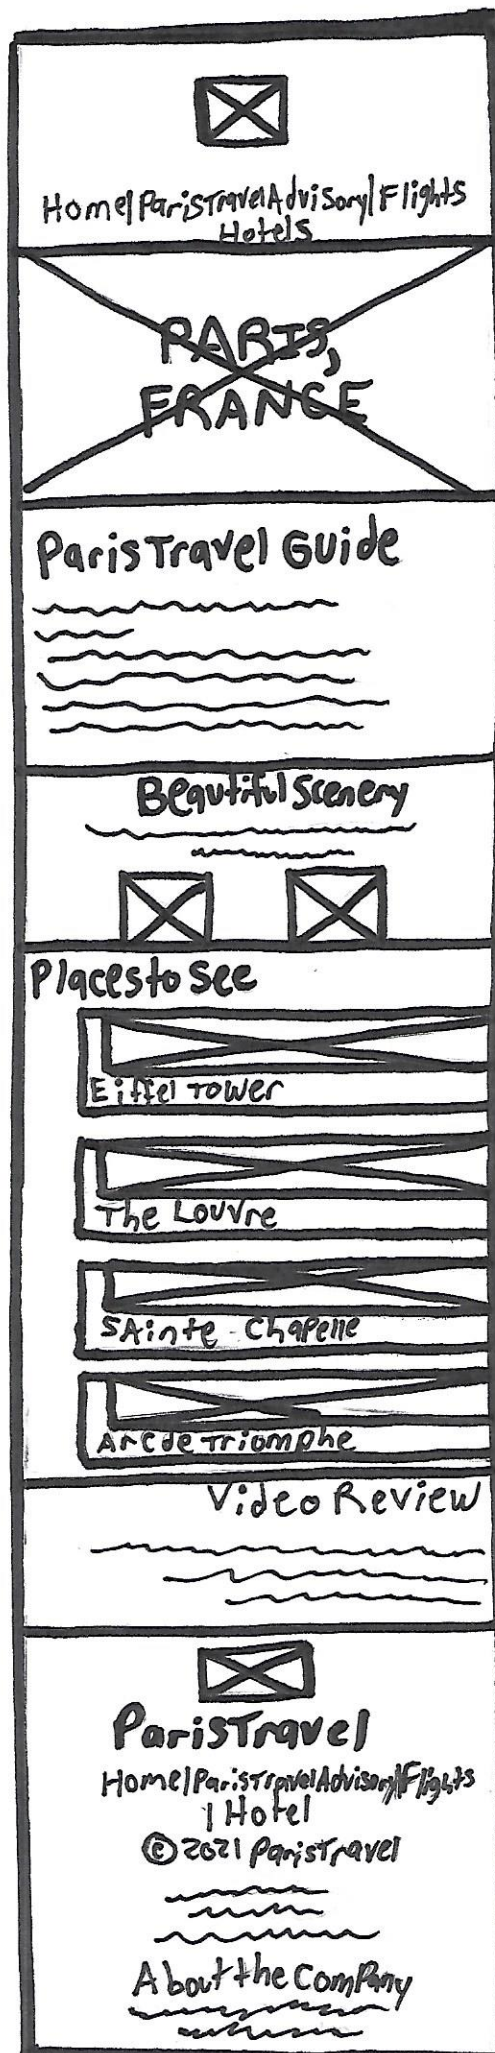 Home|ParisTravelAdvisory|Flights
Hotels
PARIS,
FRANCE
Paris Travel Guide
Beautiful Scenery
Places to See
Eiffel Tower
The Louvre
SAinte Chapelle
Arc de Triomphe
Video Review
ParisTravel
Home|ParisTravelAdvisory|Flights
| Hotel
©2021 ParisTravel
About the Company